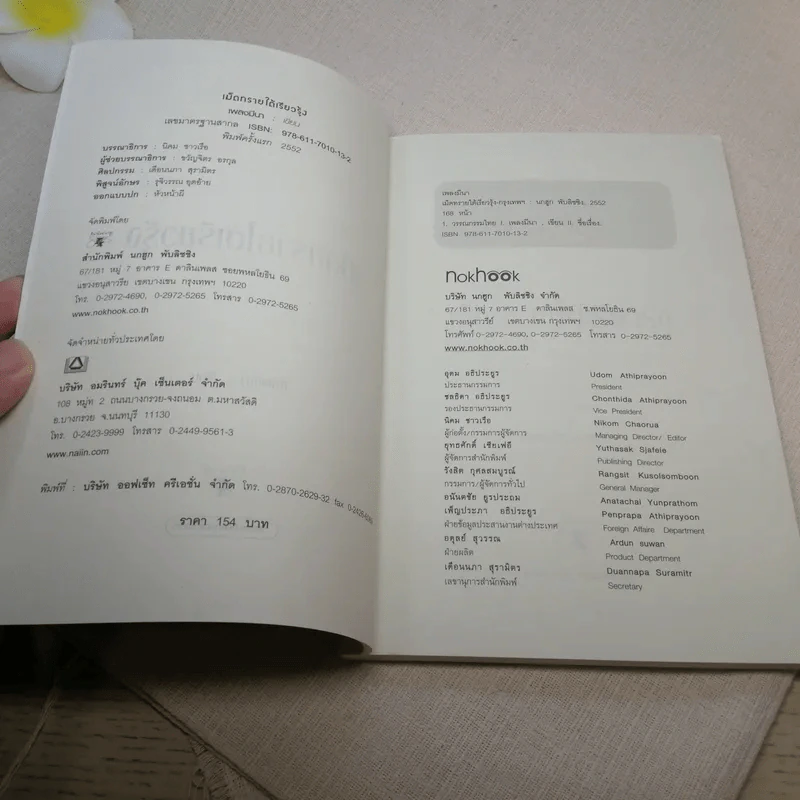 เม็ดทรายใต้เรียวรุ้ง
เพลงมีนา : เขียน
เลขมาตรฐานสากล ISBN: 978-611-7010-13-2
พิมพ์ครั้งแรก 2552
บรรณาธิการ : นิคม ชาวเรือ
ผู้ช่วยบรรณาธิการ : ขวัญจิตร อรกุล
ศิลปกรรม : เดือนนภา สุรามิตร
พิสูจน์อักษร : รุจิวรรณ ยุดย้าย
ออกแบบปก : หัวหน้าผี
จัดพิมพ์โดย
สำนักพิมพ์ นกฮูก พับลิชชิ่ง
67/181 หมู่ 7 อาคาร E คาลินเพลส ซอยพหลโยธิน 69
แขวงอนุสาวรีย์ เขตบางเขน กรุงเทพฯ 10220
โทร. 0-2972-4690, 0-2972-5265 โทรสาร 0-2972-5265
www.nokhook.co.th
จัดจำหน่ายทั่วประเทศโดย
บริษัท อมรินทร์ บุ๊ค เซ็นเตอร์ จำกัด
108 หมู่ที่ 2 ถนนบางกรวย-จงถนอม ต.มหาสวัสดิ์
อ.บางกรวย จ.นนทบุรี 11130
โทร. 0-2423-9999 โทรสาร 0-2449-9561-3
www.naiin.com
พิมพ์ที่ : บริษัท ออฟเซ็ท ครีเอชั่น จำกัด โทร. 0-2870-2629-32 fax
ราคา 154 บาท
เพลงมีนา
เม็ดทรายใต้เรียวรุ้ง-กรุงเทพฯ : นกฮูก พับลิชชิ่ง, 2552
168 หน้า
1. วรรณกรรมไทย I. เพลงมีนา , เขียน II. ชื่อเรื่อง.
ISBN 978-611-7010-13-2
nokhook
บริษัท นกฮูก พับลิชชิ่ง จำกัด
67/181 หมู่ 7 อาคาร E คาลินเพลส ซ.พหลโยธิน 69
แขวงอนุสาวรีย์ เขตบางเขน กรุงเทพฯ 10220
โทรศัพท์ 0-2972-4690, 0-2972-5265 โทรสาร 0-2972-5265
www.nokhook.co.th
อุดม อธิประยูร Udom Athiprayoon
ประธานกรรมการ President
ชลธิดา อธิประยูร Chonthida Athiprayoon
รองประธานกรรมการ Vice President
นิคม ชาวเรือ Nikom Chaorua
ผู้ก่อตั้ง/กรรมการผู้จัดการ Managing Director/ Editor
ยุทธศักดิ์ เซียเฟอี Yuthasak Sjafeie
ผู้จัดการสำนักพิมพ์ Publishing Director
รังสิต กุศลสมบูรณ์ Rangsit Kusolsomboon
กรรมการ/ผู้จัดการทั่วไป General Manager
อนันตชัย ยูรประถม Anatachai Yunprathom
เพ็ญประภา อธิประยูร Penprapa Athiprayoon
ฝ่ายข้อมูลประสานงานต่างประเทศ Foreign Affaire Department
อดุลย์ สุวรรณ Ardun suwan
ฝ่ายผลิต Product Department
เดือนนภา สุรามิตร Duannapa Suramitr
เลขานุการสำนักพิมพ์ Secretary